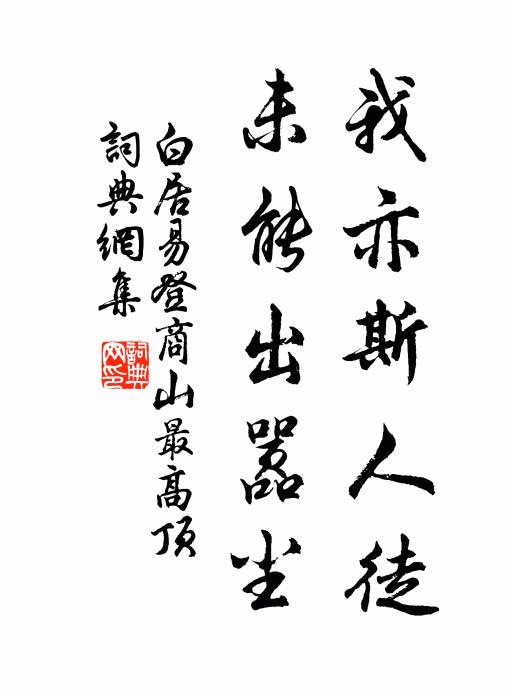 我亦斯人徒
未能出嚣尘
白居易登商山最高顶
詞典網集
詞典网印